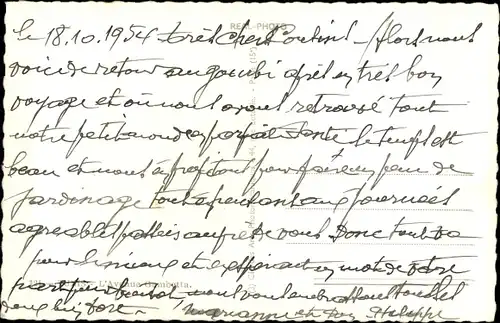 le 18.10.1954 très chers Cousins - Alors nous
voici de retour au gourbi après un très bon
voyage et où nous avons retrouvé tout
notre petit monde en parfaite santé le temps est
beau et nous profitons pour faire un peu de
jardinage tout en pensant aux journées
agréables passées auprès de vous Donc tout va
pour le mieux et en espérant un mot de votre
part nous vous embrassons tous
Marianne et Philippe
REAL-PHOTO
L'Avenue Gambetta